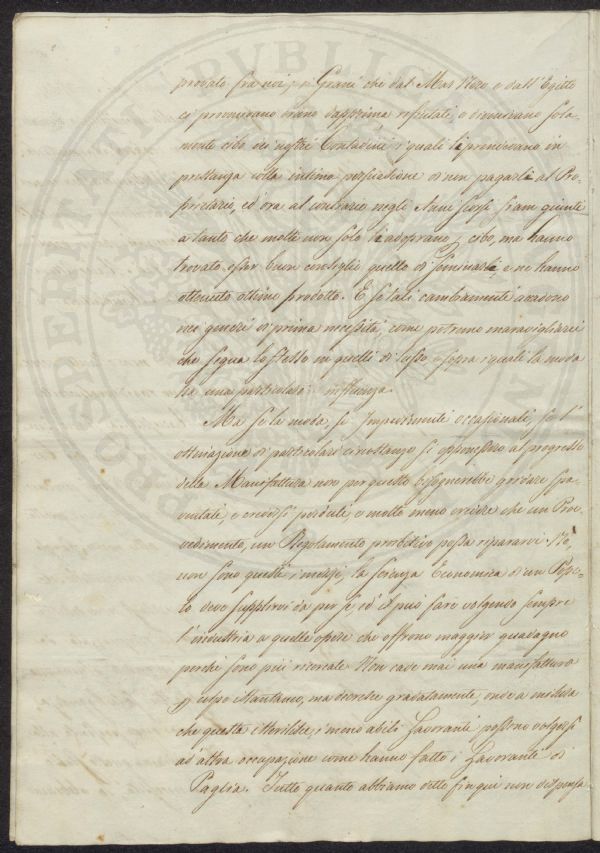 provato fra noi, poi Grani che dal Mar Nero e dall'Egitto
ci provenivano erano dapprima rifiutati, e divenivano sola-
mente cibo dei nostri Contadini i quali li prendevano in
prestanza colla intima persuasione di non pagarli al Pro-
prietario, ed ora al contrario negli Anni scorsi siam giunti
a tanto che molti non solo li adoprano p cibo, ma hanno
trovato esser buon consiglio quello di seminarli, e ne hanno
ottenuto ottimo prodotto. E se tali cambiamenti accadono
nei generi di prima necessità, come potremo maravigliarci
che segua lo stesso in quelli di lusso, e sopra i quali la moda
ha una particolare influenza.
Ma se la moda, se Impedimenti occasionali, se l'
ostinazione di particolari circostanze si opponessero ai progressi
della Manifattura non per questo bisognerebbe gridare spa-
ventati, e credersi perduti, e molto meno credere che un Prov-
vedimento, un Regolamento proibitivo possa ripararvi. No,
non sono questi i mezzi, la scienza Economica di un Popo-
lo deve supplirvi da per se, ed il può fare volgendo sempre
l'industria a quelle opere che offrono maggior guadagno
perché sono più ricercate. Non cade mai una manifattura
p colpo istantaneo, ma decresce gradatamente, onde a misura
che questa isterilisce, i meno abili Lavoranti possono volgersi
ad altra occupazione come hanno fatto i Lavoranti di
Paglia. Tutto quanto abbiamo detto fin qui non dispensa